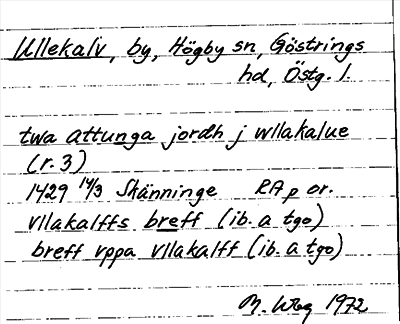 Ullekalv, by, Högby sn, Göstrings
hd, Östg. l.
twa attunga jordh j wllakalue
(r. 3)
1429 14/3 Skänninge RA p or.
vllakalffs breff (ib. a tgo)
breff vppa vllakalff (ib. a tgo)
M. 1972